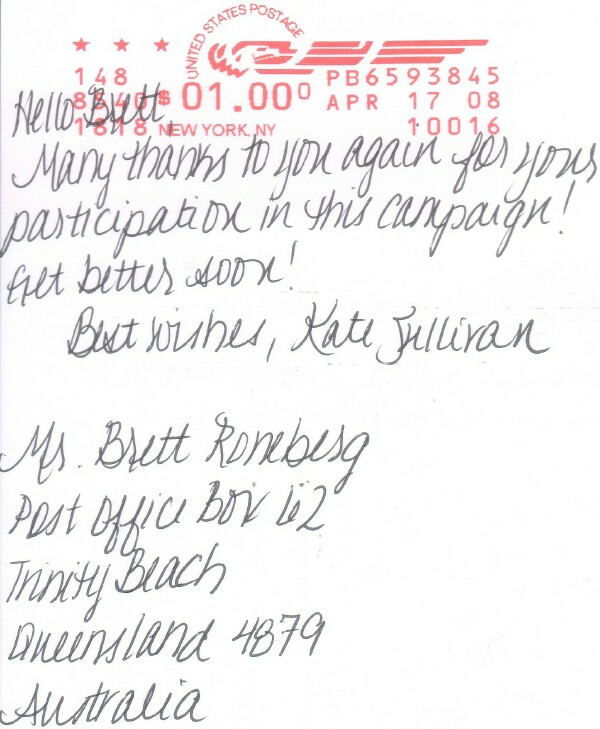 UNITED STATES POSTAGE
148
8840 $01.000 PB6593845
APR 17 08
1818 NEW YORK, NY 10016
Hello Brett,
Many thanks to you again for your
participation in this campaign!
Get better soon!
Best wishes, Kate Sullivan
Mr. Brett Roneberg
Post Office Box 62
Trinity Beach
Queensland 4879
Australia